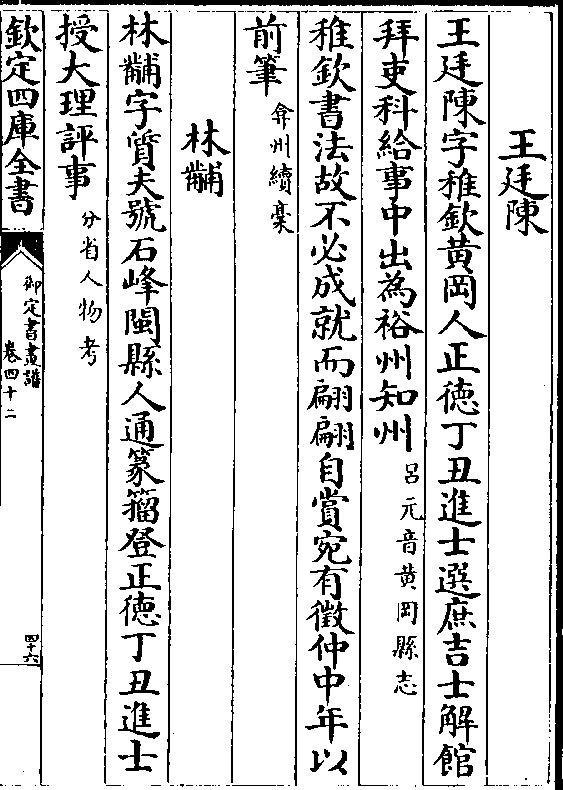 王廷陳
王廷陳字稚欽黄岡人正徳丁丑進士選庶吉士解館
拜吏科給事中出為裕州知州吕元音黄岡縣志
稚欽書法故不必成就而翩翩自賞宛有徴仲中年以
前筆弇州續稾
林黼
林黼字質夫號石峰閩縣人通篆籀登正徳丁丑進士
授大理評事分省人物考
欽定四庫全書
御定書畫譜
卷四十二
四十六